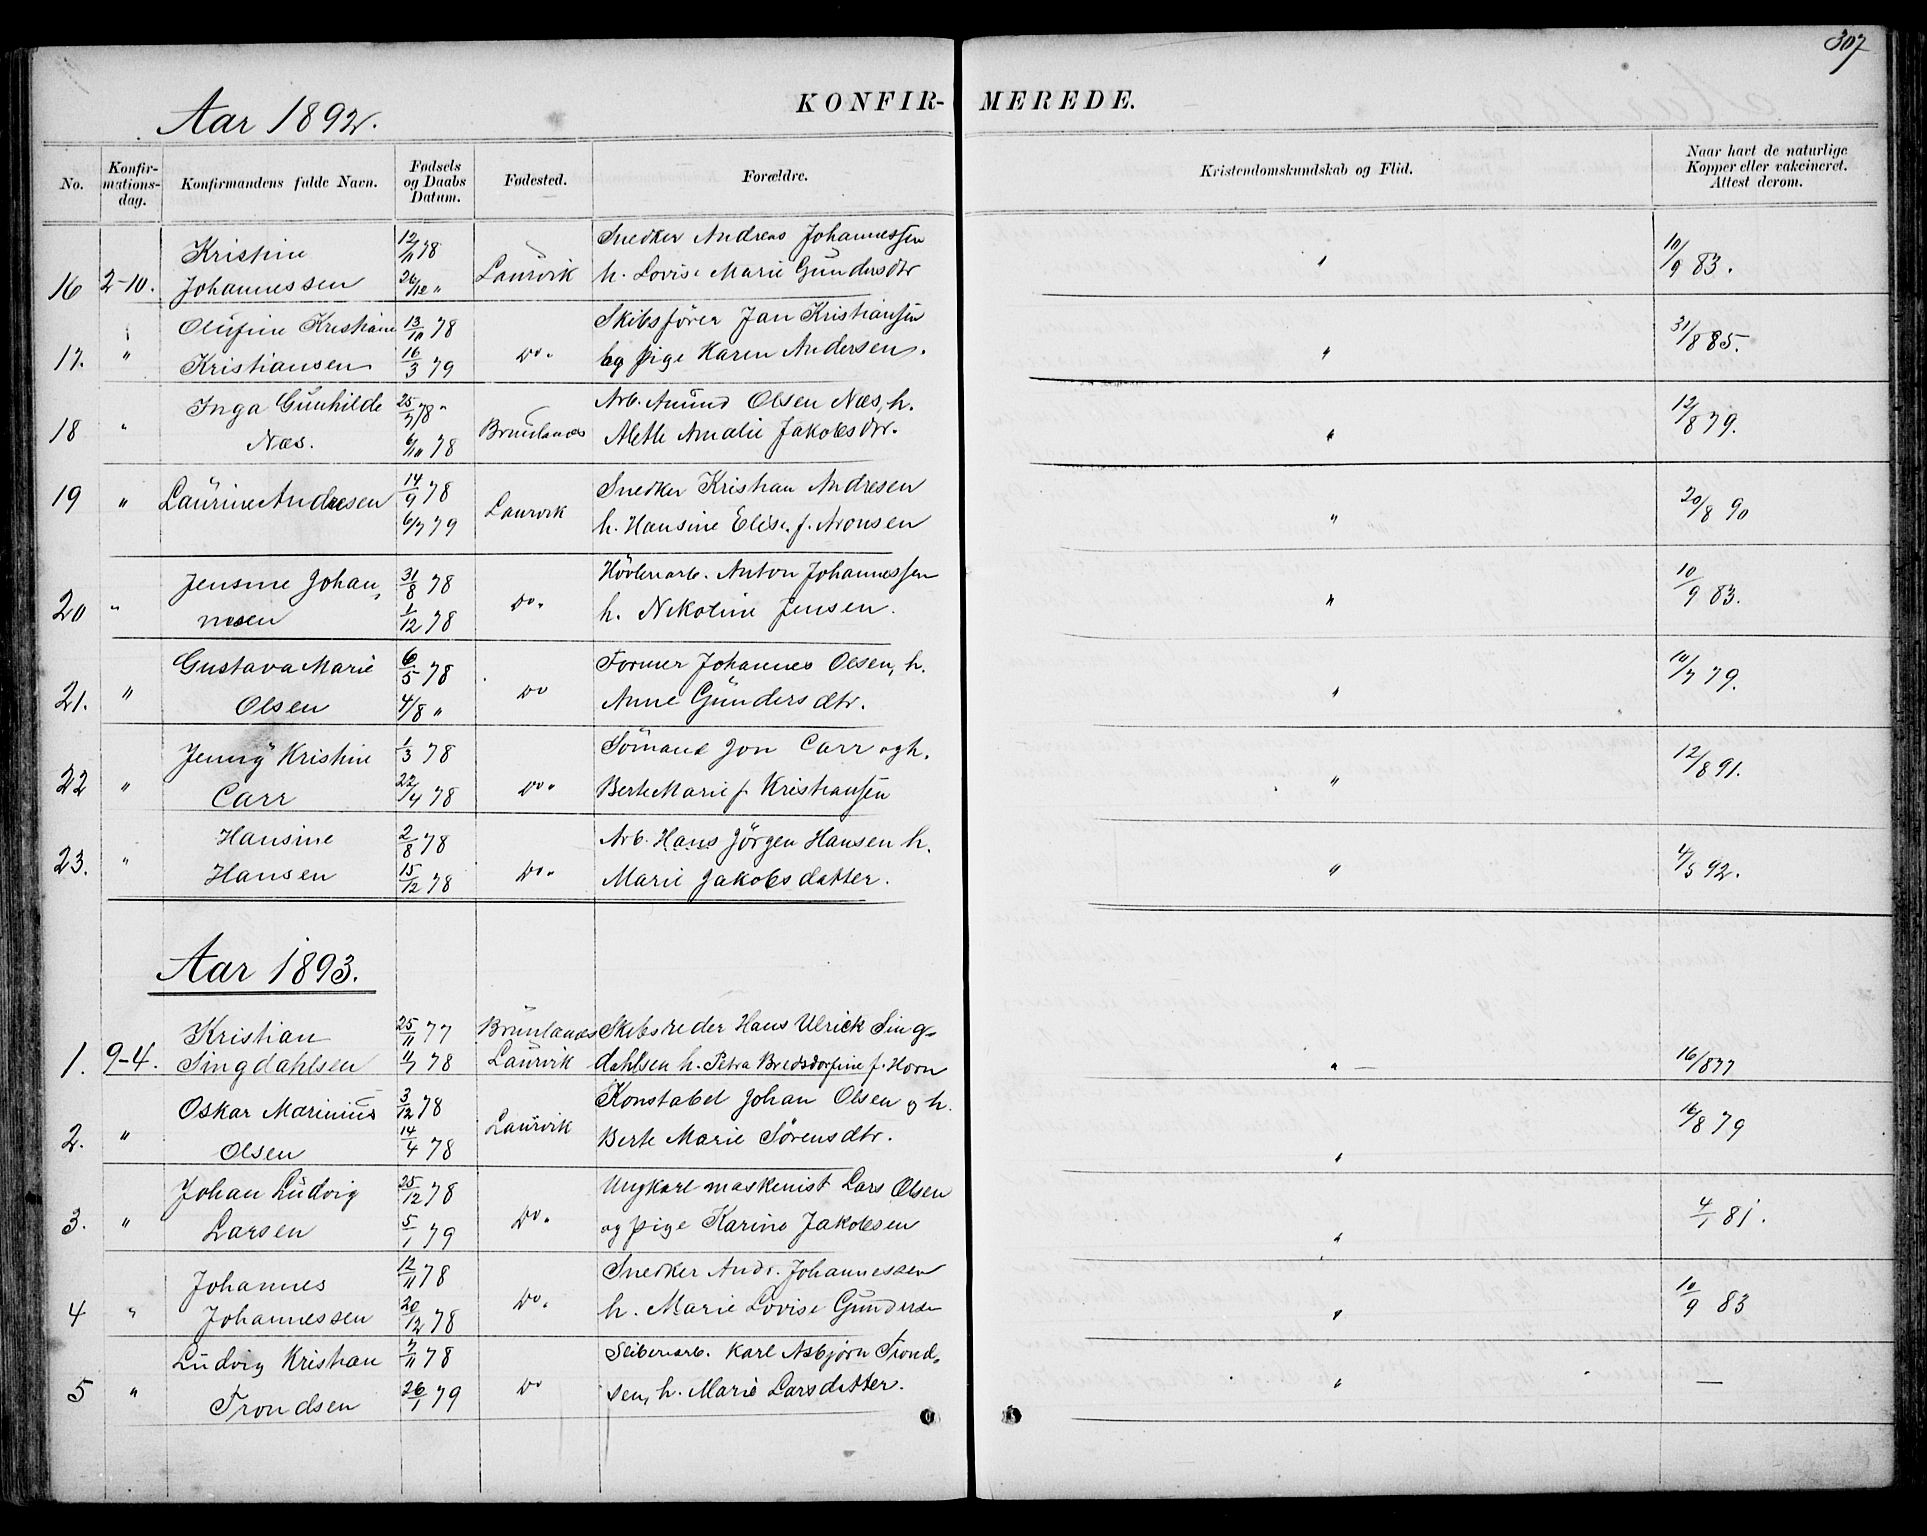 307
KONFIR- MEREDE.
Aar 1892.
No. Konfir-mations-dag. Konfirmandens fulde Navn. Fødsels og Daabs Datum. Fødested. Forældre. Kristendomskundskab og Flid. Naar havt de naturlige Kopper eller vakcineret. Attest derom.
Kristine 12/11 78 Snedker Andreas Johannessen
16 2-10. Johannessen 26/12 " Laurvik h. Lovise Marie Gundersdtr " 10/9 83.
Olufine Kristiane 13/10 78 Skibsfører Jan Kristiansen
17. " Kristiansen 16/3 79 Do. og pige Karen Andersen. " 31/8 85.
Inga Gunhilde 25/7 78 Arb. Amund Olsen Næs, h.
18 " Næs. 6/10 78 Brunlanæs Alette Amalie Jakobsdtr. " 12/8 79.
19 " Laurine Andresen 14/9 78 Laurvik Snedker Kristian Andresen
6/7 79 h. Hansine Elise f. Aronsen " 20/8 90
Jensine Johan- 31/8 78 Høvleriarb. Anton Johannessen
20 " nesen 1/12 78 Do. h. Nikoline Jensen. " 10/9 83.
Gustava Marie 6/5 78 Former Johannes Olsen, h.
21. " Olsen 4/8 " Do Anne Gundersdtr. " 10/7 79.
Jenny Kristine 1/3 78 Sömand Jon Carr og h.
22 " Carr 22/4 78 Do. Berte Marie f. Kristiansen " 12/8 91.
Hansine 2/8 78 Arb. Hans Jörgen Hansen h.
23. " Hansen 15/12 78 Do. Marie Jakobsdatter. " 4/5 92.
Aar 1893.
Kristian 25/11 77 Brunlanæs Skibsreder Hans Ulrick Sing-
1. 9-4. Singdahlsen 11/7 78 Laurvik dahlsen h. Petra Bredsdorfine f. Horn " 16/8 77
Oskar Marinius 3/12 78 Konstabel Johan Olsen og h.
2. " Olsen 14/4 78 Laurvik Berte Marie Sørensdtr. " 16/8 79
Johan Ludvig 25/12 78 Ungkarl maskenist Lars Olsen
3. " Larsen 5/1 79 Do. og pige Karine Jakobsen " 4/1 81.
Johannes 12/11 78 Snedker Andr. Johannessen
4 " Johannessen 20/12 78 Do. h. Marie Lovise Gundersen " 10/9 83
Ludvig Kristian 7/11 78 Sliberiarb. Karl Asbjørn Trond-
5 " Trondsen 26/1 79 Do sen, h. Marie Larsdatter. " —